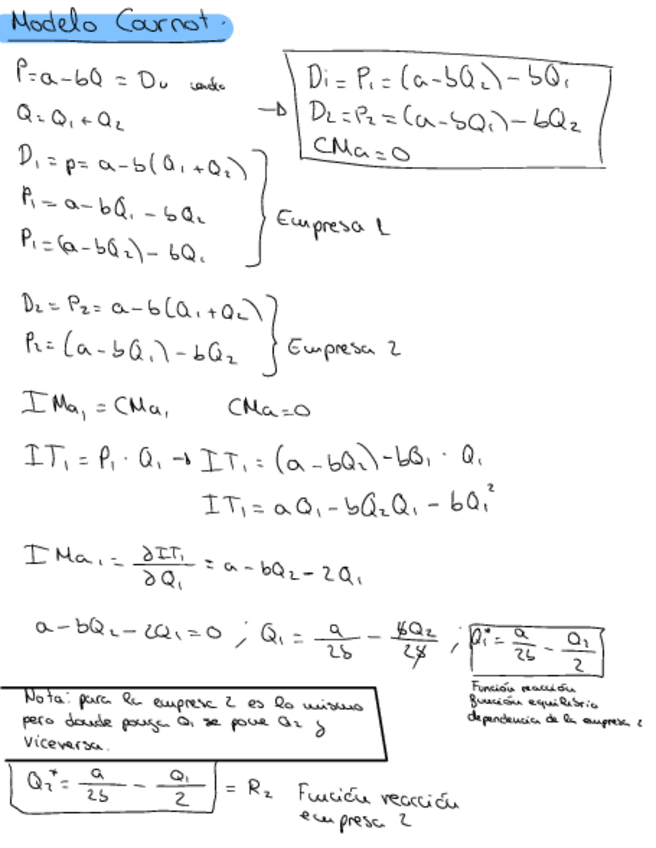 Modelo Cournot.
P=a-bQ = Du siendo
Q=Q₁+Q₂
→ D₁ = P₁ = (a-bQ₂)-bQ₁
D₂=P₂=(a-bQ₁)-bQ₂
CMa=0
D₁=p= a-b(Q₁+Q₂)
P₁=a-bQ₁-bQ₂
P₁=(a-bQ₂)-bQ₁
Empresa 1
D₂=P₂=a-b(Q₁+Q₂)
P₂=(a-bQ₁)-bQ₂
Empresa 2
IMa₁=CMa₁ CMa=0
IT₁=P₁·Q₁ → IT₁=(a-bQ₂)-bQ₁·Q₁
IT₁=aQ₁-bQ₂Q₁-bQ₁²
IMa₁=∂IT₁/∂Q₁=a-bQ₂-2Q₁
a-bQ₂-2Q₁=0 ; Q₁=a/2b - bQ₂/2b ; Q₁*=a/2b - Q₂/2
Función reacción
función equilibrio
dependencia de la empresa 2
Nota: para la empresa 2 es lo mismo
pero donde ponga Q₁ se pone Q₂ y
viceversa.
Q₂*=a/2b - Q₁/2 = R₂ Función reacción
empresa 2